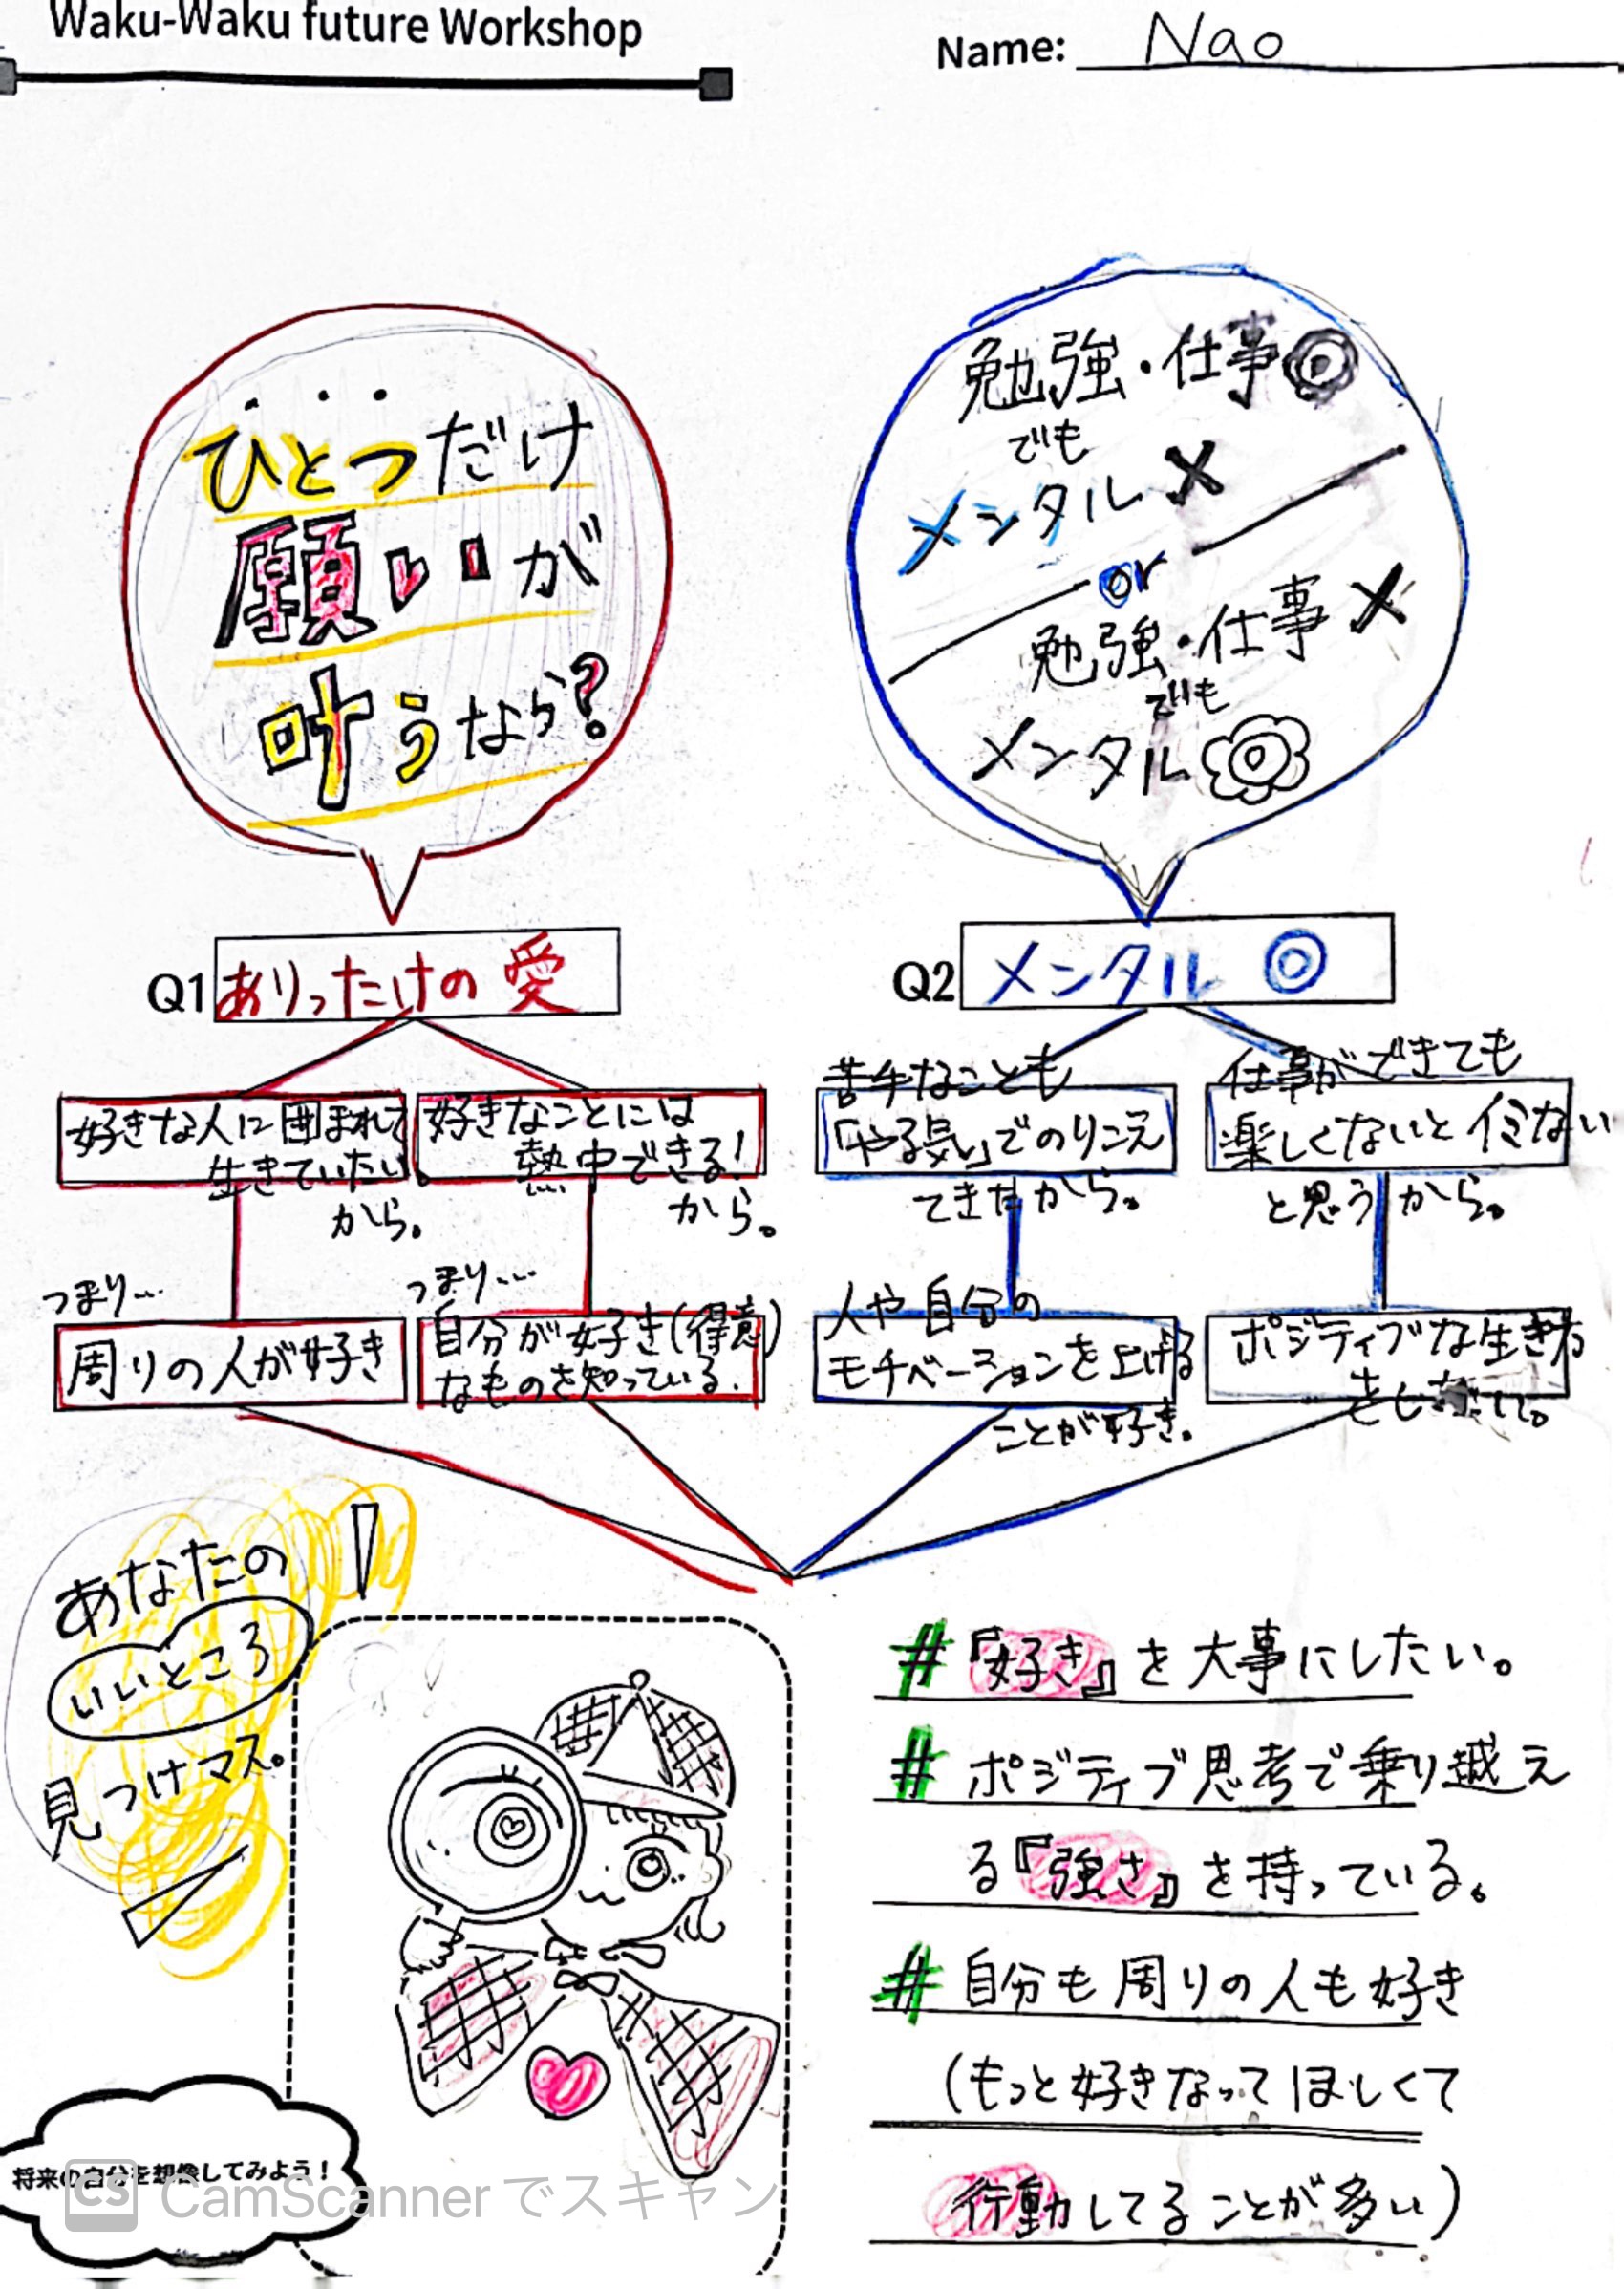 Waku-Waku future Workshop
Name: Nao
ひとつだけ
願いが
叶うなら?
勉強・仕事◎
でも
メンタル×
or
勉強・仕事×
でも
メンタル◎
Q1 ありったけの愛
Q2 メンタル ◎
好きな人に囲まれて
生きていたい
から。
好きなことには
熱中できる!
から。
苦手なことも
「やる気」でのりこえ
てきたから。
仕事ができても
楽しくないとイミない
と思うから。
つまり…
周りの人が好き
つまり…
自分が好き(得意)
なものを知っている.
人や自分の
モチベーションを上げる
ことが好き。
ポジティブな生き方
あなたの
いいところ
見つけマス。
#『好き』を大事にしたい。
# ポジティブ思考で乗り越え
る『強さ』を持っている。
# 自分も周りの人も好き
(もっと好きなってほしくて
行動してることが多い)
将来の自分を想像してみよう!
CS CamScanner でスキャン